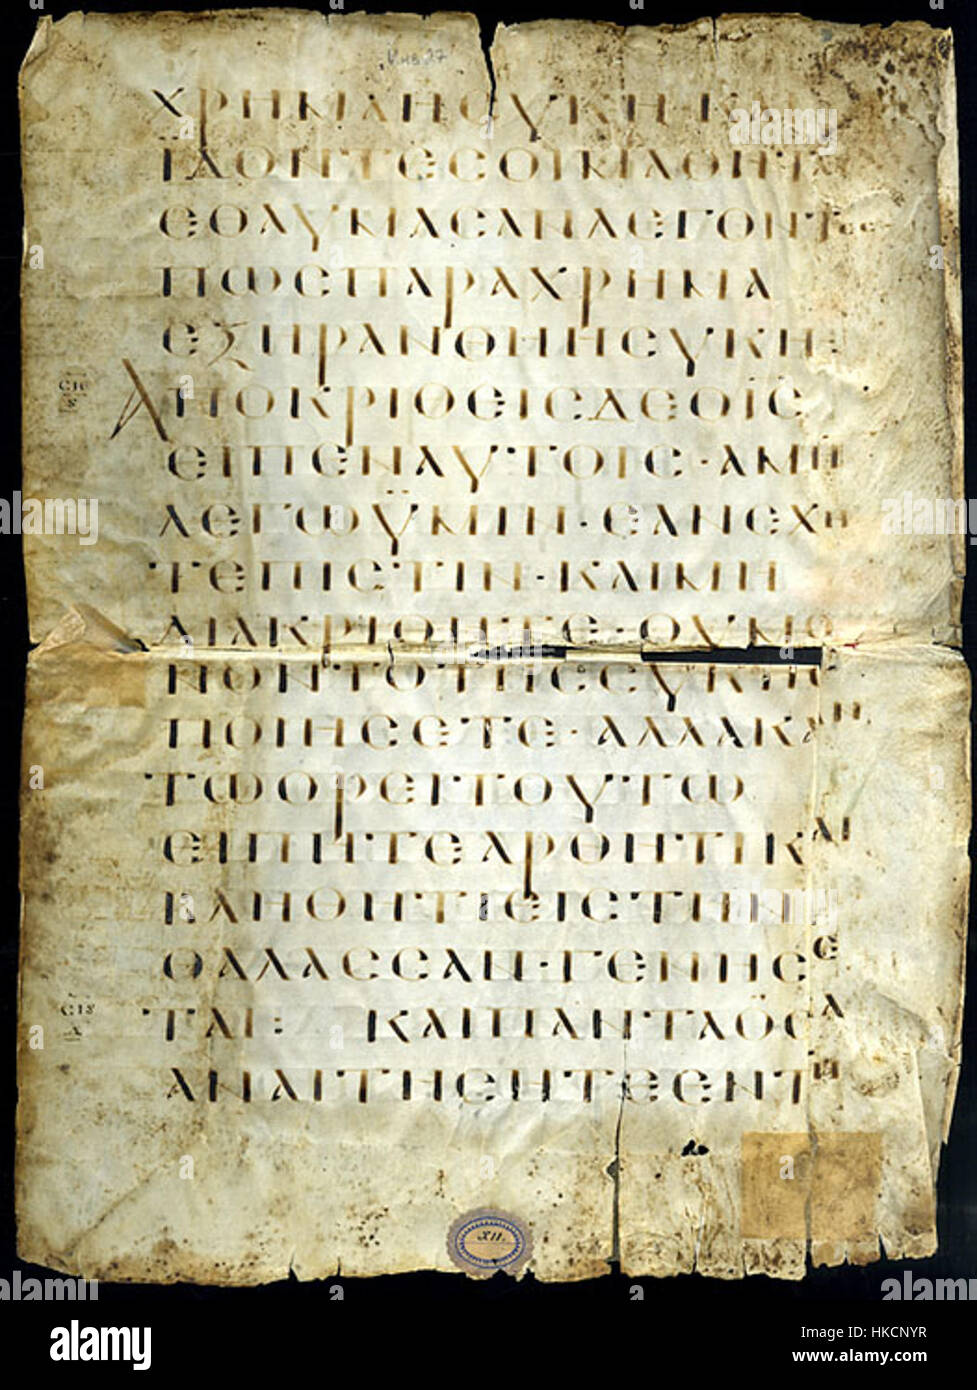 ΧΡΗΜΑΗϹΥΚΗ·ΚΑΙ
ΪΔΟΝΤΕϹΟΙΜΑΘΗΤΑΙ
ΕΘΑΥΜΑϹΑΝΛΕΓΟΝΤΕϹ
ΠΩϹΠΑΡΑΧΡΗΜΑ
ΕΞΗΡΑΝΘΗΗϹΥΚΗ:
ΑΠΟΚΡΙΘΕΙϹΔΕΟΙ̅Ϲ̅
ΕΙΠΕΝΑΥΤΟΙϹ·ΑΜΗ
ΛΕΓΩΫΜΙΝ·ΕΑΝΕΧΗ
ΤΕΠΙϹΤΙΝ·ΚΑΙΜΗ
ΔΙΑΚΡΙΘΗΤΕ·ΟΥΜΟ
ΝΟΝΤΟΤΗϹϹΥΚΗϹ
ΠΟΙΗϹΕΤΕ·ΑΛΛΑΚΑΝ
ΤΩΟΡΕΙΤΟΥΤΩ
ΕΙΠΗΤΕΑΡΘΗΤΙΚΑΙ
ΚΑΙ
ΒΛΗΘΗΤΙΕΙϹΤΗΝ
ΘΑΛΑϹϹΑΝ·ΓΕΝΗϹΕ
ΤΑΙ: ΚΑΙΠΑΝΤΑΟϹΑ
ΑΝΑΙΤΗϹΗΤΕΕΝΤΗ
XII.
alamy
Image ID: HKCNYR
www.alamy.com